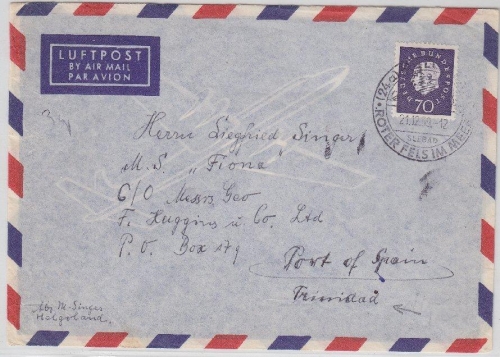 LUFTPOST
BY AIR MAIL
PAR AVION
DEUTSCHE BUNDESPOST
70
(24a)
21.12.59.-12
SEEBAD
ROTER FELS IM MEER
Herrn Siegfried Singer
M.S. „Fiona"
C/O Messrs Geo
F. Huggins u Co. Ltd
P.O. Box 179
Port of Spain
Trinidad
Abs M. Singer
Helgoland